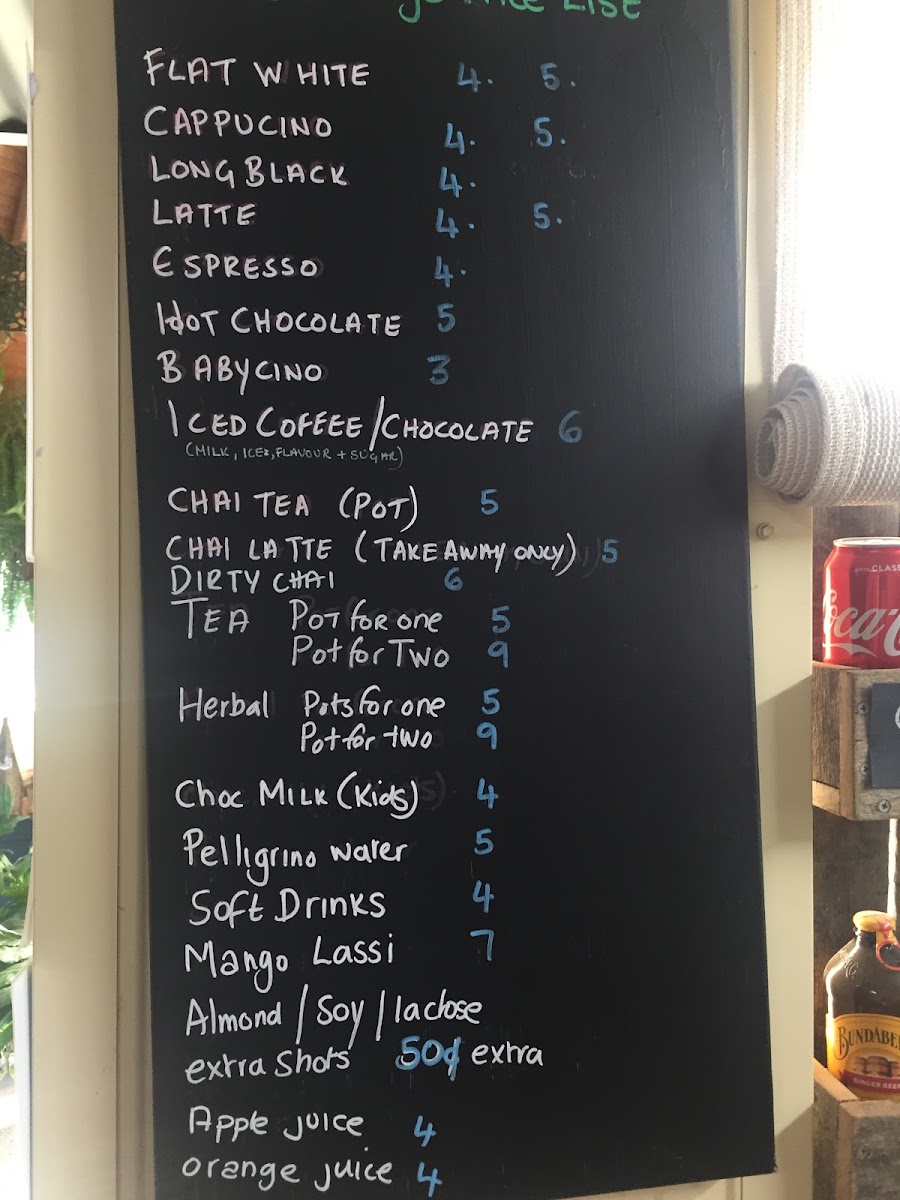 LIST
FLAT WHITE 4. 5.
CAPPUCINO 4. 5.
LONG BLACK 4.
LATTE 4. 5.
ESPRESSO 4.
HOT CHOCOLATE 5
BABYCINO 3
ICED COFFEE/CHOCOLATE 6
(MILK, ICE, FLAVOUR + SUGAR)
CHAI TEA (POT) 5
CHAI LATTE (TAKE AWAY ONLY) 5
DIRTY CHAI 6
TEA POT FOR ONE 5
Pot for Two 9
Herbal Pots for one 5
Pot for two 9
Choc MILK (Kids) 4
Pelligrino water 5
Soft Drinks 4
Mango Lassi 7
Almond / Soy / lactose
extra shots 50¢ extra
Apple juice 4
orange juice 4
CLASS
Coca-C
BUNDABE
GINGER BEER